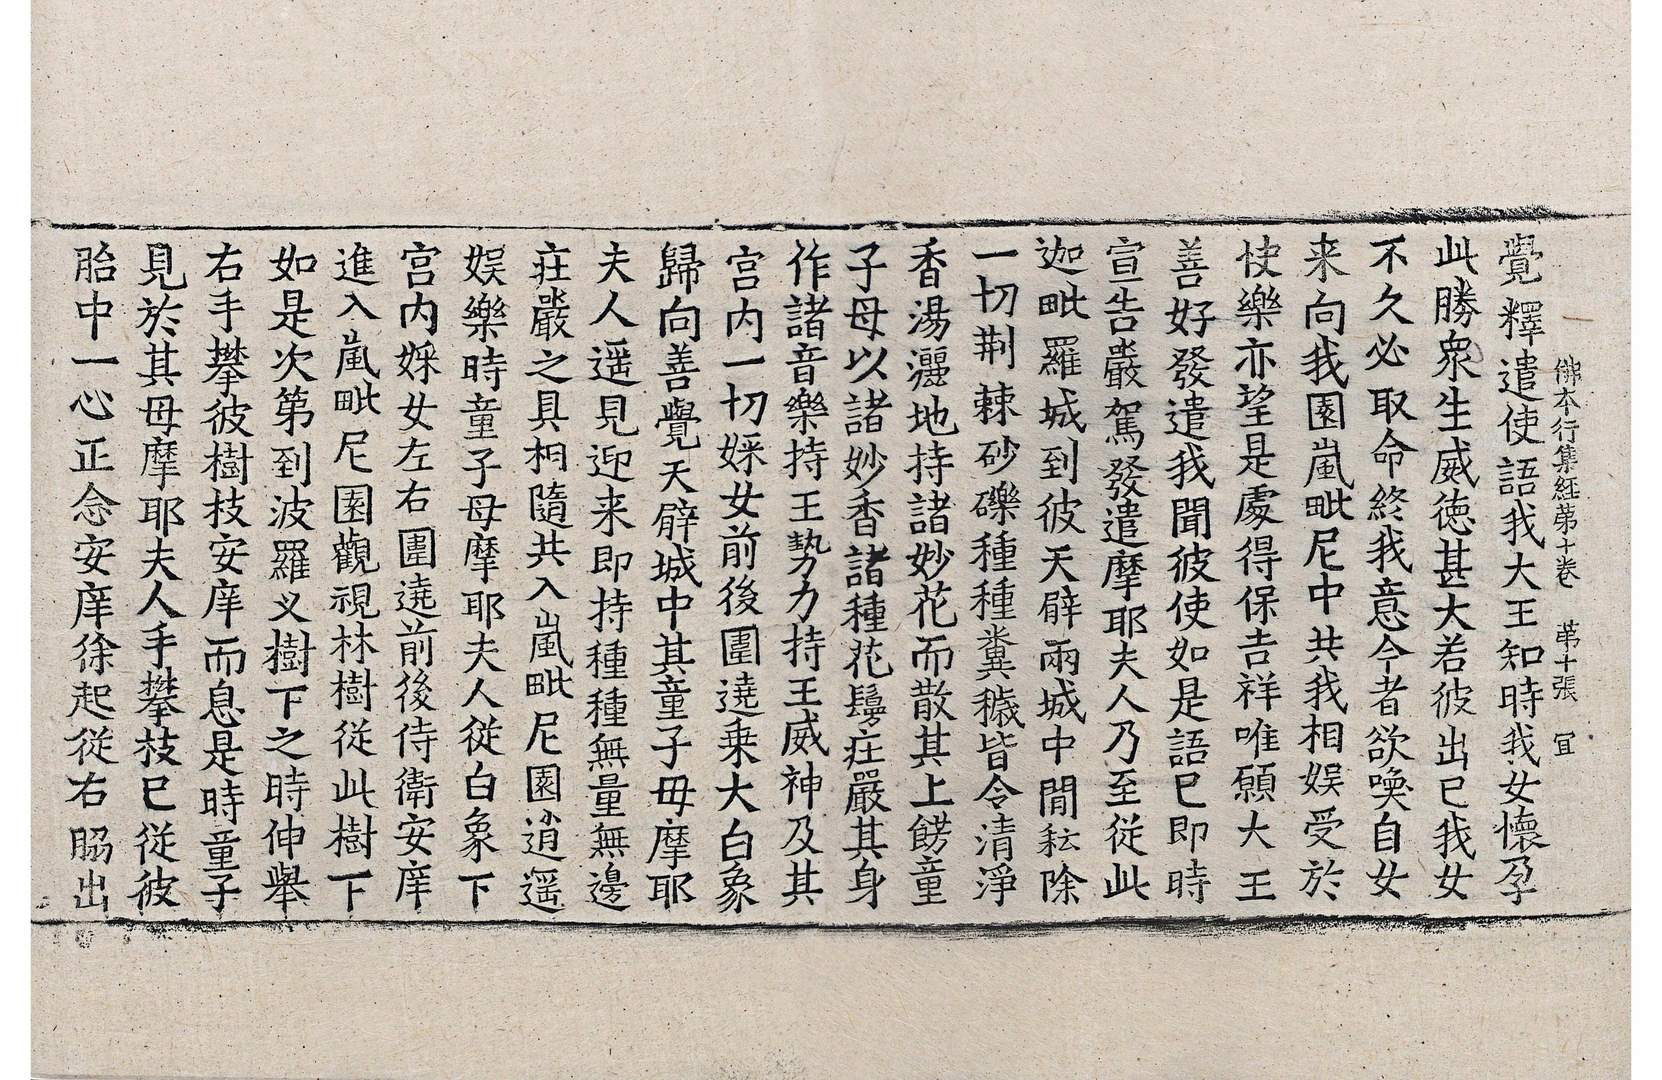 佛本行集経苐十卷　苐十張　冝
覺釋遣使語我大王知時我女懷孕
此勝衆生威德甚大若彼出已我女
不久必取命終我意今者欲喚自女
来向我園嵐毗尼中共我相娛受於
快樂亦望是處得保吉祥唯願大王
善好發遣我聞彼使如是語已即時
宣告嚴駕發遣摩耶夫人乃至從此
迦毗羅城到彼天臂兩城中閒耘除
一切荆棘砂礫種種糞穢皆令清淨
香湯灑地持諸妙花而散其上餝童
子母以諸妙香諸種花鬘庄嚴其身
作諸音樂持王勢力持王威神及其
宮内一切婇女前後圍遶乗大白象
歸向善覺天臂城中其童子母摩耶
夫人遥見迎来即持種種無量無邊
庄嚴之具相隨共入嵐毗尼園逍遥
娛樂時童子母摩耶夫人從白象下
宮内婇女左右圍遶前後侍衛安庠
進入嵐毗尼園觀視林樹從此樹下
如是次第到波羅义樹下之時伸舉
右手攀彼樹枝安庠而息是時童子
見於其母摩耶夫人手攀枝已從彼
胎中一心正念安庠徐起從右脇出